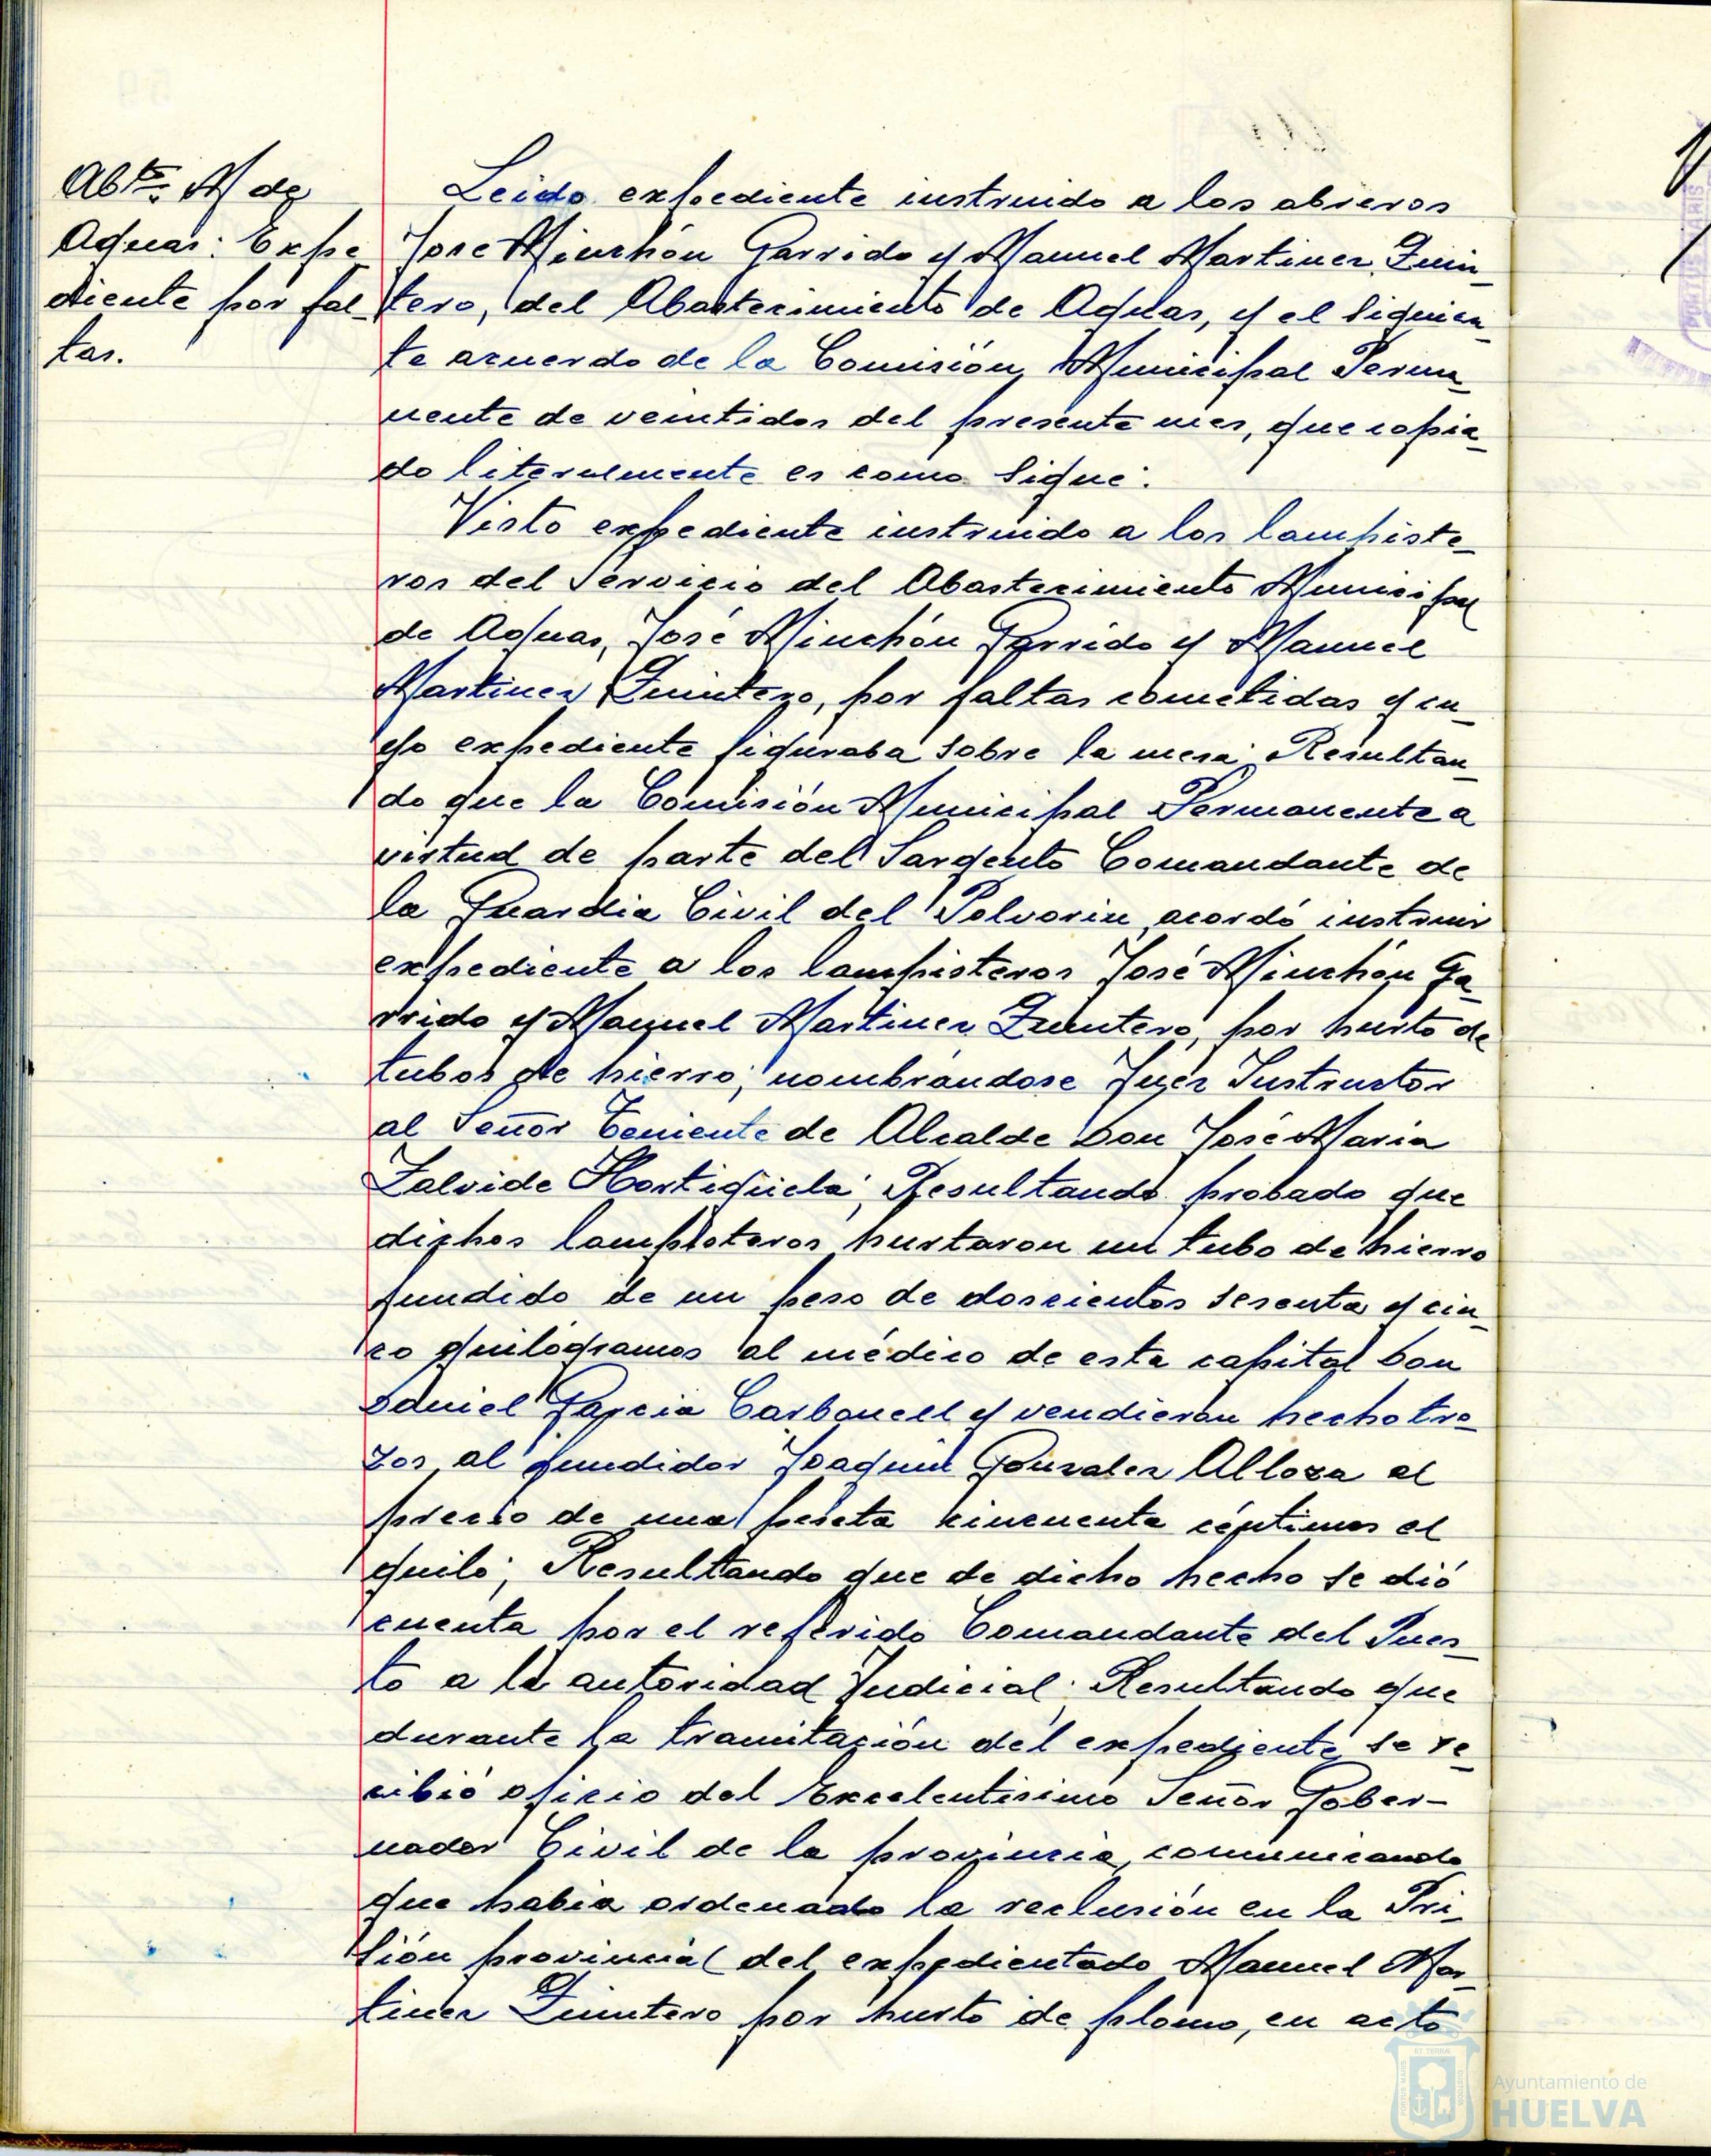 Abto. M. de
Aguas: Expe
diente por fal-
tas.
Leido expediente instruido a los obreros
Jose Minchón Garrido y Manuel Martinez Quin-
tero, del Abastecimiento de Aguas, y el siguien-
te acuerdo de la Comisión Municipal Perma-
nente de veintidos del presente mes, que copia-
do literalmente es como sigue:
Visto expediente instruido a los lampiste-
ros del Servicio del Abastecimiento Municipal
de Aguas, José Minchón Garrido y Manuel
Martinez Quintero, por faltas cometidas y cu-
yo expediente figuraba sobre la mesa; Resultan-
do que la Comisión Municipal Permanente a
virtud de parte del Sargento Comandante de
la Guardia Civil del Polvorin, acordó instruir
expediente a los lampisteros José Minchón Ga-
rrido y Manuel Martinez Quintero, por hurto de
tubos de hierro; nombrándose Juez Instructor
al Señor Teniente de Alcalde Don José Maria
Zalvide Hortigüela; Resultando probado que
dichos lampisteros hurtaron un tubo de hierro
fundido de un peso de doscientos sesenta y cin-
co quilógramos al médico de esta capital Don
Daniel Garcia Carbonell y vendieron hecho tro-
zos, al fundidor Joaquin Gonzalez Alloza al
precio de una peseta cincuenta céntimos el
quilo; Resultando que de dicho hecho se dió
cuenta por el referido Comandante del Pues-
to a la autoridad Judicial; Resultando que
durante la tramitación del expediente se re-
cibió oficio del Excelentisimo Señor Gober-
nador Civil de la provincia, comunicando
que habia ordenado la reclusión en la Pri-
sión provincial del expedientado Manuel Mar-
tinez Quintero por hurto de plomo, en acto
Ayuntamiento de
HUELVA